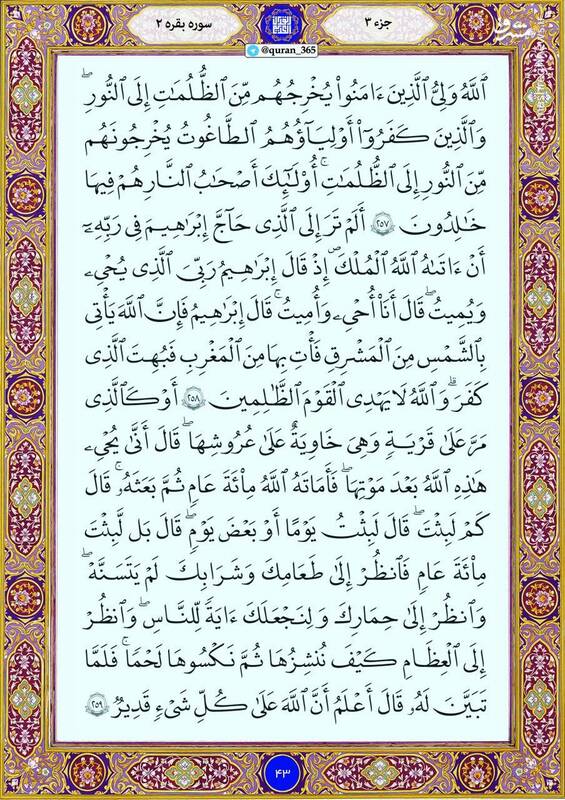 جزء ۳
سوره بقره ۲
@quran_365
ٱللَّهُ وَلِيُّ ٱلَّذِينَ ءَامَنُواْ يُخۡرِجُهُم مِّنَ ٱلظُّلُمَٰتِ إِلَى ٱلنُّورِۖ
وَٱلَّذِينَ كَفَرُوٓاْ أَوۡلِيَآؤُهُمُ ٱلطَّٰغُوتُ يُخۡرِجُونَهُم
مِّنَ ٱلنُّورِ إِلَى ٱلظُّلُمَٰتِۗ أُوْلَٰٓئِكَ أَصۡحَٰبُ ٱلنَّارِۖ هُمۡ فِيهَا
خَٰلِدُونَ ﴿۲۵۷﴾ أَلَمۡ تَرَ إِلَى ٱلَّذِي حَآجَّ إِبۡرَٰهِـۧمَ فِي رَبِّهِۦٓ
أَنۡ ءَاتَىٰهُ ٱللَّهُ ٱلۡمُلۡكَ إِذۡ قَالَ إِبۡرَٰهِـۧمُ رَبِّيَ ٱلَّذِي يُحۡيِۦ
وَيُمِيتُ قَالَ أَنَا۠ أُحۡيِۦ وَأُمِيتُۖ قَالَ إِبۡرَٰهِـۧمُ فَإِنَّ ٱللَّهَ يَأۡتِي
بِٱلشَّمۡسِ مِنَ ٱلۡمَشۡرِقِ فَأۡتِ بِهَا مِنَ ٱلۡمَغۡرِبِ فَبُهِتَ ٱلَّذِي
كَفَرَۗ وَٱللَّهُ لَا يَهۡدِي ٱلۡقَوۡمَ ٱلظَّٰلِمِينَ ﴿۲۵۸﴾ أَوۡ كَٱلَّذِي
مَرَّ عَلَىٰ قَرۡيَةٖ وَهِيَ خَاوِيَةٌ عَلَىٰ عُرُوشِهَا قَالَ أَنَّىٰ يُحۡيِۦ
هَٰذِهِ ٱللَّهُ بَعۡدَ مَوۡتِهَاۖ فَأَمَاتَهُ ٱللَّهُ مِاْئَةَ عَامٖ ثُمَّ بَعَثَهُۥۖ قَالَ
كَمۡ لَبِثۡتَۖ قَالَ لَبِثۡتُ يَوۡمًا أَوۡ بَعۡضَ يَوۡمٖۖ قَالَ بَل لَّبِثۡتَ
مِاْئَةَ عَامٖ فَٱنظُرۡ إِلَىٰ طَعَامِكَ وَشَرَابِكَ لَمۡ يَتَسَنَّهۡۖ
وَٱنظُرۡ إِلَىٰ حِمَارِكَ وَلِنَجۡعَلَكَ ءَايَةٗ لِّلنَّاسِۖ وَٱنظُرۡ
إِلَى ٱلۡعِظَامِ كَيۡفَ نُنشِزُهَا ثُمَّ نَكۡسُوهَا لَحۡمٗاۚ فَلَمَّا
تَبَيَّنَ لَهُۥ قَالَ أَعۡلَمُ أَنَّ ٱللَّهَ عَلَىٰ كُلِّ شَيۡءٖ قَدِيرٞ ﴿۲۵۹﴾
۴۳